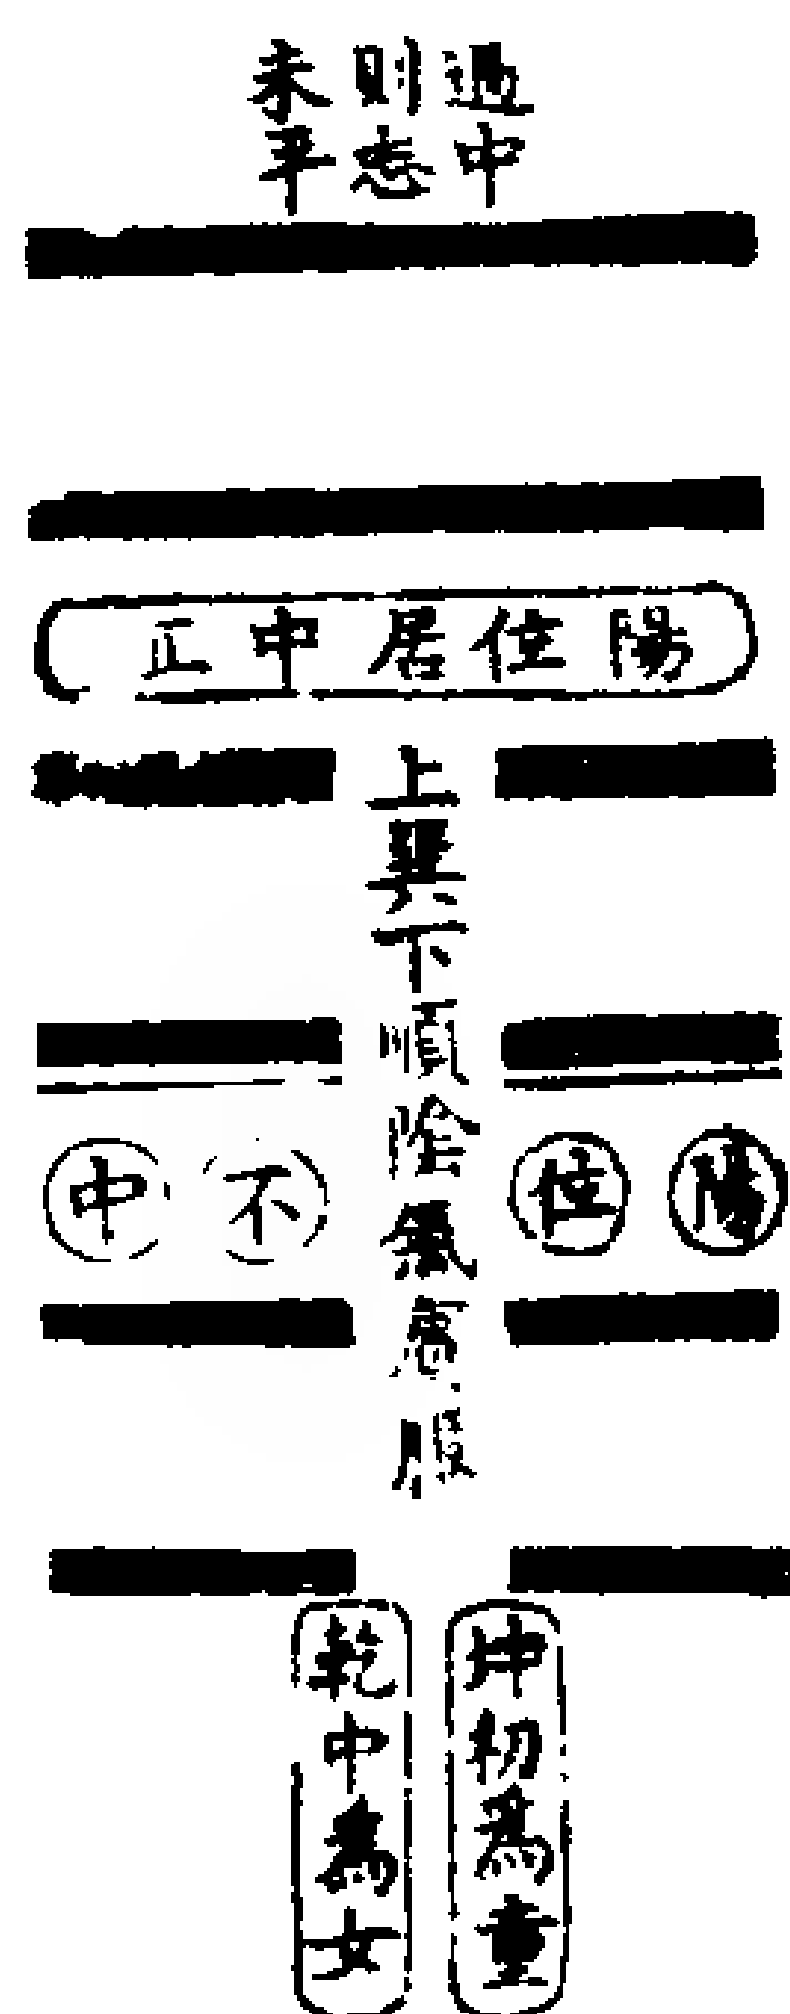 過中
則志
未平
陽位居中正
上巽下順陰氣服
陽位不中
坤初爲童
乾中為女